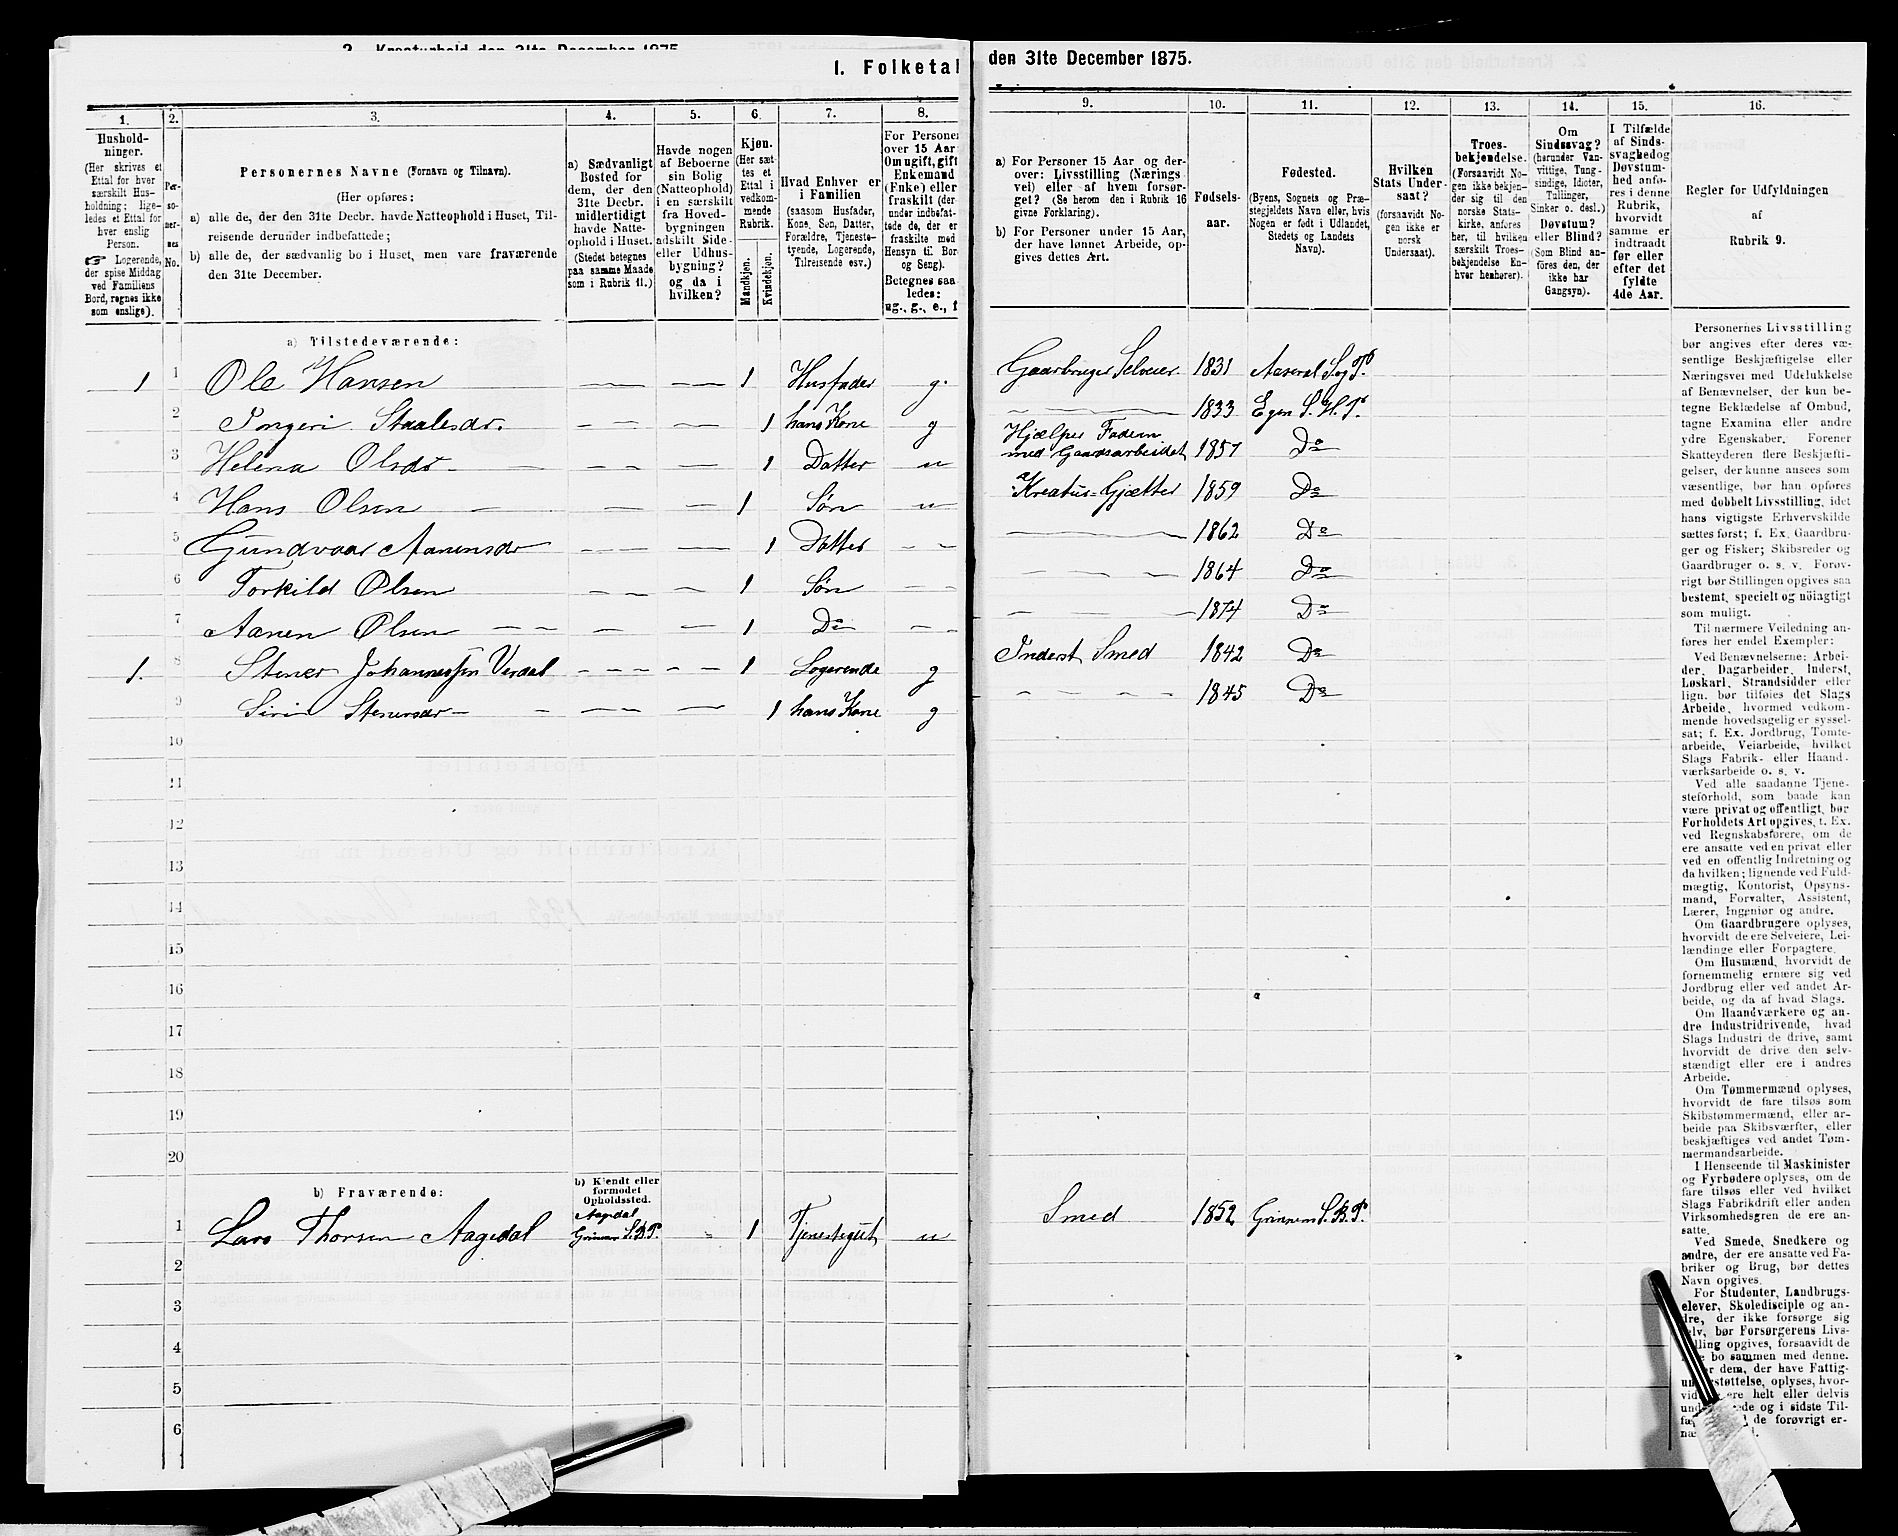 2. Kreaturhold den 31te December 1875
I. Folketal
den 31te December 1875.
1. 2. 3. 4. 5. 6. 7. 8.
9. 10. 11. 12. 13. 14. 15. 16.
Hushold-
ninger.
(Her skrives et
Ettal for hver
særskilt Hus-
holdning; lige-
ledes et Ettal for
hver enslig
Person.
☞ Logerende,
der spise Middag
ved Familiens
Bord, regnes ikke
som enslige).
Per-
so-
ner-
nes
No.
Personernes Navne (Fornavn og Tilnavn).
(Her opføres:
a) alle de, der den 31te Decbr. havde Natteophold i Huset, Til-
reisende derunder indbefattede;
b) alle de, der sædvanlig bo i Huset, men vare fraværende
den 31te December.
a) Sædvanligt
Bosted for
dem, der den
31te Decbr.
midlertidigt
havde Natte-
ophold i Huset.
(Stedet betegnes
paa samme Maade
som i Rubrik 11.)
Havde nogen
af Beboerne
sin Bolig
(Natteophold)
i en særskilt
fra Hoved-
bygningen
adskilt Side-
eller Udhus-
bygning?
og da i
hvilken?
Kjøn.
(Her sæt-
tes et
Ettal i
vedkom-
mende
Rubrik.
Mandkjøn.
Kvindekjøn.
Hvad Enhver er
i Familien
(saasom Husfader,
Kone, Søn, Datter,
Forældre, Tjeneste-
tyende, Logerende,
Tilreisende osv.)
For Personer
over 15 Aar:
Om ugift, gift,
Enkemand
(Enke) eller
fraskilt (der-
under indbefat-
tede de, der er
fraskilte med
Hensyn til Bord
og Seng).
Betegnes saa-
ledes:
ug., g., e., f
a) For Personer 15 Aar og der-
over: Livsstilling (Nærings-
vei) eller af hvem forsør-
get? (Se herom den i Rubrik 16
givne Forklaring).
b) For Personer under 15 Aar,
der have lønnet Arbeide, op-
gives dettes Art.
Fødsels-
aar.
Fødested.
(Byens, Sognets og Præ-
stegjeldets Navn eller, hvis
Nogen er født i Udlandet,
Stedets og Landets
Navn).
Hvilken
Stats Under-
saat?
(forsaavidt No-
gen ikke er
norsk
Undersaat).
Troes-
bekjendelse.
(Forsaavidt No-
gen ikke bekjen-
der sig til den
norske Stats-
kirke, anføres
her, til hvilken
særskilt Troes-
bekjendelse En-
hver henhører).
Om
Sindssvag?
(herunder Van-
vittige, Tung-
sindige, Idioter,
Tullinger,
Sinker o. desl.)
Døvstum?
eller Blind?
(Som Blind an-
føres den, der
ikke har
Gangsyn).
I Tilfælde
af Sinds-
svaghed og
Døvstum-
hed anfø-
res i denne
Rubrik,
hvorvidt
samme er
indtraadt
før eller
efter det
fyldte
4de Aar.
Regler for Udfyldningen
af
Rubrik 9.
a) Tilstedeværende:
1 1 Ole Hansen 1 Husfader g. Gaardbruger Selveier. 1831 Aaseral S. og P.
2 Ingeri Staalesdr. 1 hans Kone g 1833 Egen S. H. P.
3 Helena Olsdr 1 Datter u Hjælper Faderen
med Gaardsarbeidet 1857 Do
4 Hans Olsen 1 Søn u Kreatur-Gjætter 1859 Do
5 Gundvaar Aanensdr 1 Datter 1862 Do
6 Torkild Olsen 1 Søn 1864 Do
7 Aanen Olsen 1 Do 1874 Do
1. 8 Stener Johannessen Verdal 1 Logerende g Inderst Smed 1842 Do
9 Siri Stenersdr 1 hans Kone g 1845 Do
10
11
12
13
14
15
16
17
18
19
20
b) Fraværende:
b) Kjendt eller
formodet
Opholdssted.
1 Lars Thorsen Aagedal Aagedal
S.B.P. 1 Tjenestegut u Smed 1852 S. B. P.
2
3
4
5
6
Personernes Livsstilling
bør angives efter deres væ-
sentlige Beskjæftigelse eller
Næringsvei med Udelukkelse
af Benævnelser, der kun be-
tegne Beklædelse af Ombud,
tagne Examina eller andre
ydre Egenskaber. Forener
Skatteyderen flere Beskjæfti-
gelser, der kunne ansees som
væsentlige, bør han opføres
med dobbelt Livsstilling, idet
hans vigtigste Erhvervskilde
sættes først; f. Ex. Gaardbru-
ger og Fisker; Skibsreder og
Gaardbruger o. s. v. Forøv-
rigt bør Stillingen opgives saa
bestemt, specielt og nöiagtigt
som muligt.
Til nærmere Veiledning an-
føres her endel Exempler:
Ved Benævnelserne: Arbei-
der, Dagarbeider, Inderst,
Løskarl, Strandsidder eller
lign. bør tilføies det Slags
Arbeide, hvormed vedkom-
mende hovedsagelig er syssel-
sat; f. Ex. Jordbrug, Tomte-
arbeide, Veiarbeide, hvilket
Slags Fabrik- eller Haand-
værksarbeide o. s. v.
Ved alle saadanne Tjene-
steforhold, som baade kan
være privat og offentligt, bør
Forholdets Art opgives, t. Ex.
ved Regnskabsførere, om de
ere ansatte ved en privat eller
ved en offentlig Indretning og
da hvilken; lignende ved Fuld-
mægtig, Kontorist, Opsyns-
mand, Forvalter, Assistent,
Lærer, Ingeniør og andre.
Om Gaardbrugere oplyses,
hvorvidt de ere Selveiere, Lei-
lændinge eller Forpagtere.
Om Husmænd, hvorvidt de
fornemmelig ernære sig ved
Jordbrug eller ved andet Ar-
beide, og da af hvad Slags.
Om Haandværkere og an-
dre Industridrivende, hvad
Slags Industri de drive, samt
hvorvidt de drive den selv-
stændigt eller ere i andres
Arbeide.
Om Tømmermænd oplyses,
hvorvidt de fare tilsøs som
Skibstømmermænd, eller ar-
beide paa Skibsværfter, eller
beskjæftiges ved andet Tøm-
mermandsarbeide.
I Henseende til Maskinister
og Fyrbødere oplyses, om de
fare tilsøs eller ved hvilket
Slags Fabrikdrift eller anden
Virksomhedsgren de ere an-
satte.
Ved Smede, Snedkere og
andre, der ere ansatte ved Fa-
briker og Brug, bør dettes
Navn opgives.
For Studenter, Landbrugs-
elever, Skoledisciple og an-
dre, der ikke forsørge sig
selv, bør Forsørgerens Livs-
stilling opgives, forsaavidt de
bo sammen med denne.
dem, der have Fattig-
understøttelse, oplyses, hvor-
ere helt eller delvis
og i sidste Til-
de forøvrigt er-